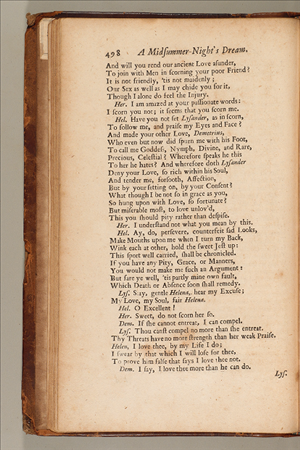 498 A Midsummer-Night's Dream.
And will you rend our ancient Love asunder,
To join with Men in scorning your poor Friend?
It is not friendly, 'tis not maidenly;
Our Sex as well as I may chide you for it,
Though I alone do feel the Injury.
Her. I am amazed at your passionate words:
I scorn you not; it seems that you scorn me.
Hel. Have you not set Lysander, as in scorn,
To follow me, and praise my Eyes and Face?
And made your other Love, Demetrius,
Who even but now did spurn me with his Foot,
To call me Goddess, Nymph, Divine, and Rare,
Precious, Celestial? Wherefore speaks he this
To her he hates? And wherefore doth Lysander
Deny your Love, so rich within his Soul,
And tender me, forsooth, Affection,
But by your setting on, by your Consent?
What though I be not so in grace as you,
So hung upon with Love, so fortunate?
But miserable most, to love unlov'd,
This you should pity rather than despise.
Her. I understand not what you mean by this.
Hel. Ay, do, persevere, counterfeit sad Looks,
Make Mouths upon me when I turn my Back,
Wink each at other, hold the sweet Jest up:
This sport well carried, shall be chronicled.
If you have any Pity, Grace, or Manners,
You would not make me such an Argument:
But fare ye well, 'tis partly mine own fault,
Which Death or Absence soon shall remedy.
Lys. Stay, gentle Helena, hear my Excuse;
My Love, my Soul, fair Helena.
Hel. O Excellent!
Her. Sweet, do not scorn her so.
Dem. If she cannot entreat, I can compel.
Lys. Thou canst compel no more than she entreat.
Thy Threats have no more strength than her weak Praise.
Helen, I love thee, by my Life I do;
I swear by that which I will lose for thee,
To prove him false that says I love thee not.
Dem. I say, I love thee more than he can do.
Lys.